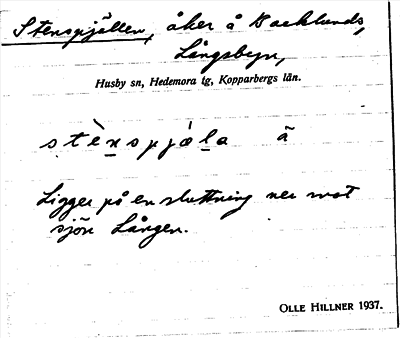 Stenspjällen, åker å Backlunds,
Långsbyn,
Husby sn, Hedemora tg, Kopparbergs län.
stènspjäla ā
Ligger på en sluttning ner mot
sjön Lången.
OLLE HILLNER 1937.